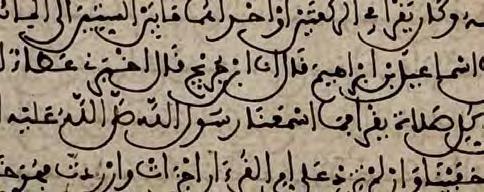 وكان يقرأ في الركعتين او احداهما ما بين الستين الى المائة
اسماعيل بن ابراهيم قال انا ابن جريج قال اخبرني عطاء
كل صلاة يقرأ فما اسمعنا رسول الله صلى الله عليه
وان لم تزد على ام القرءان اجزات وان زدت فهو خير